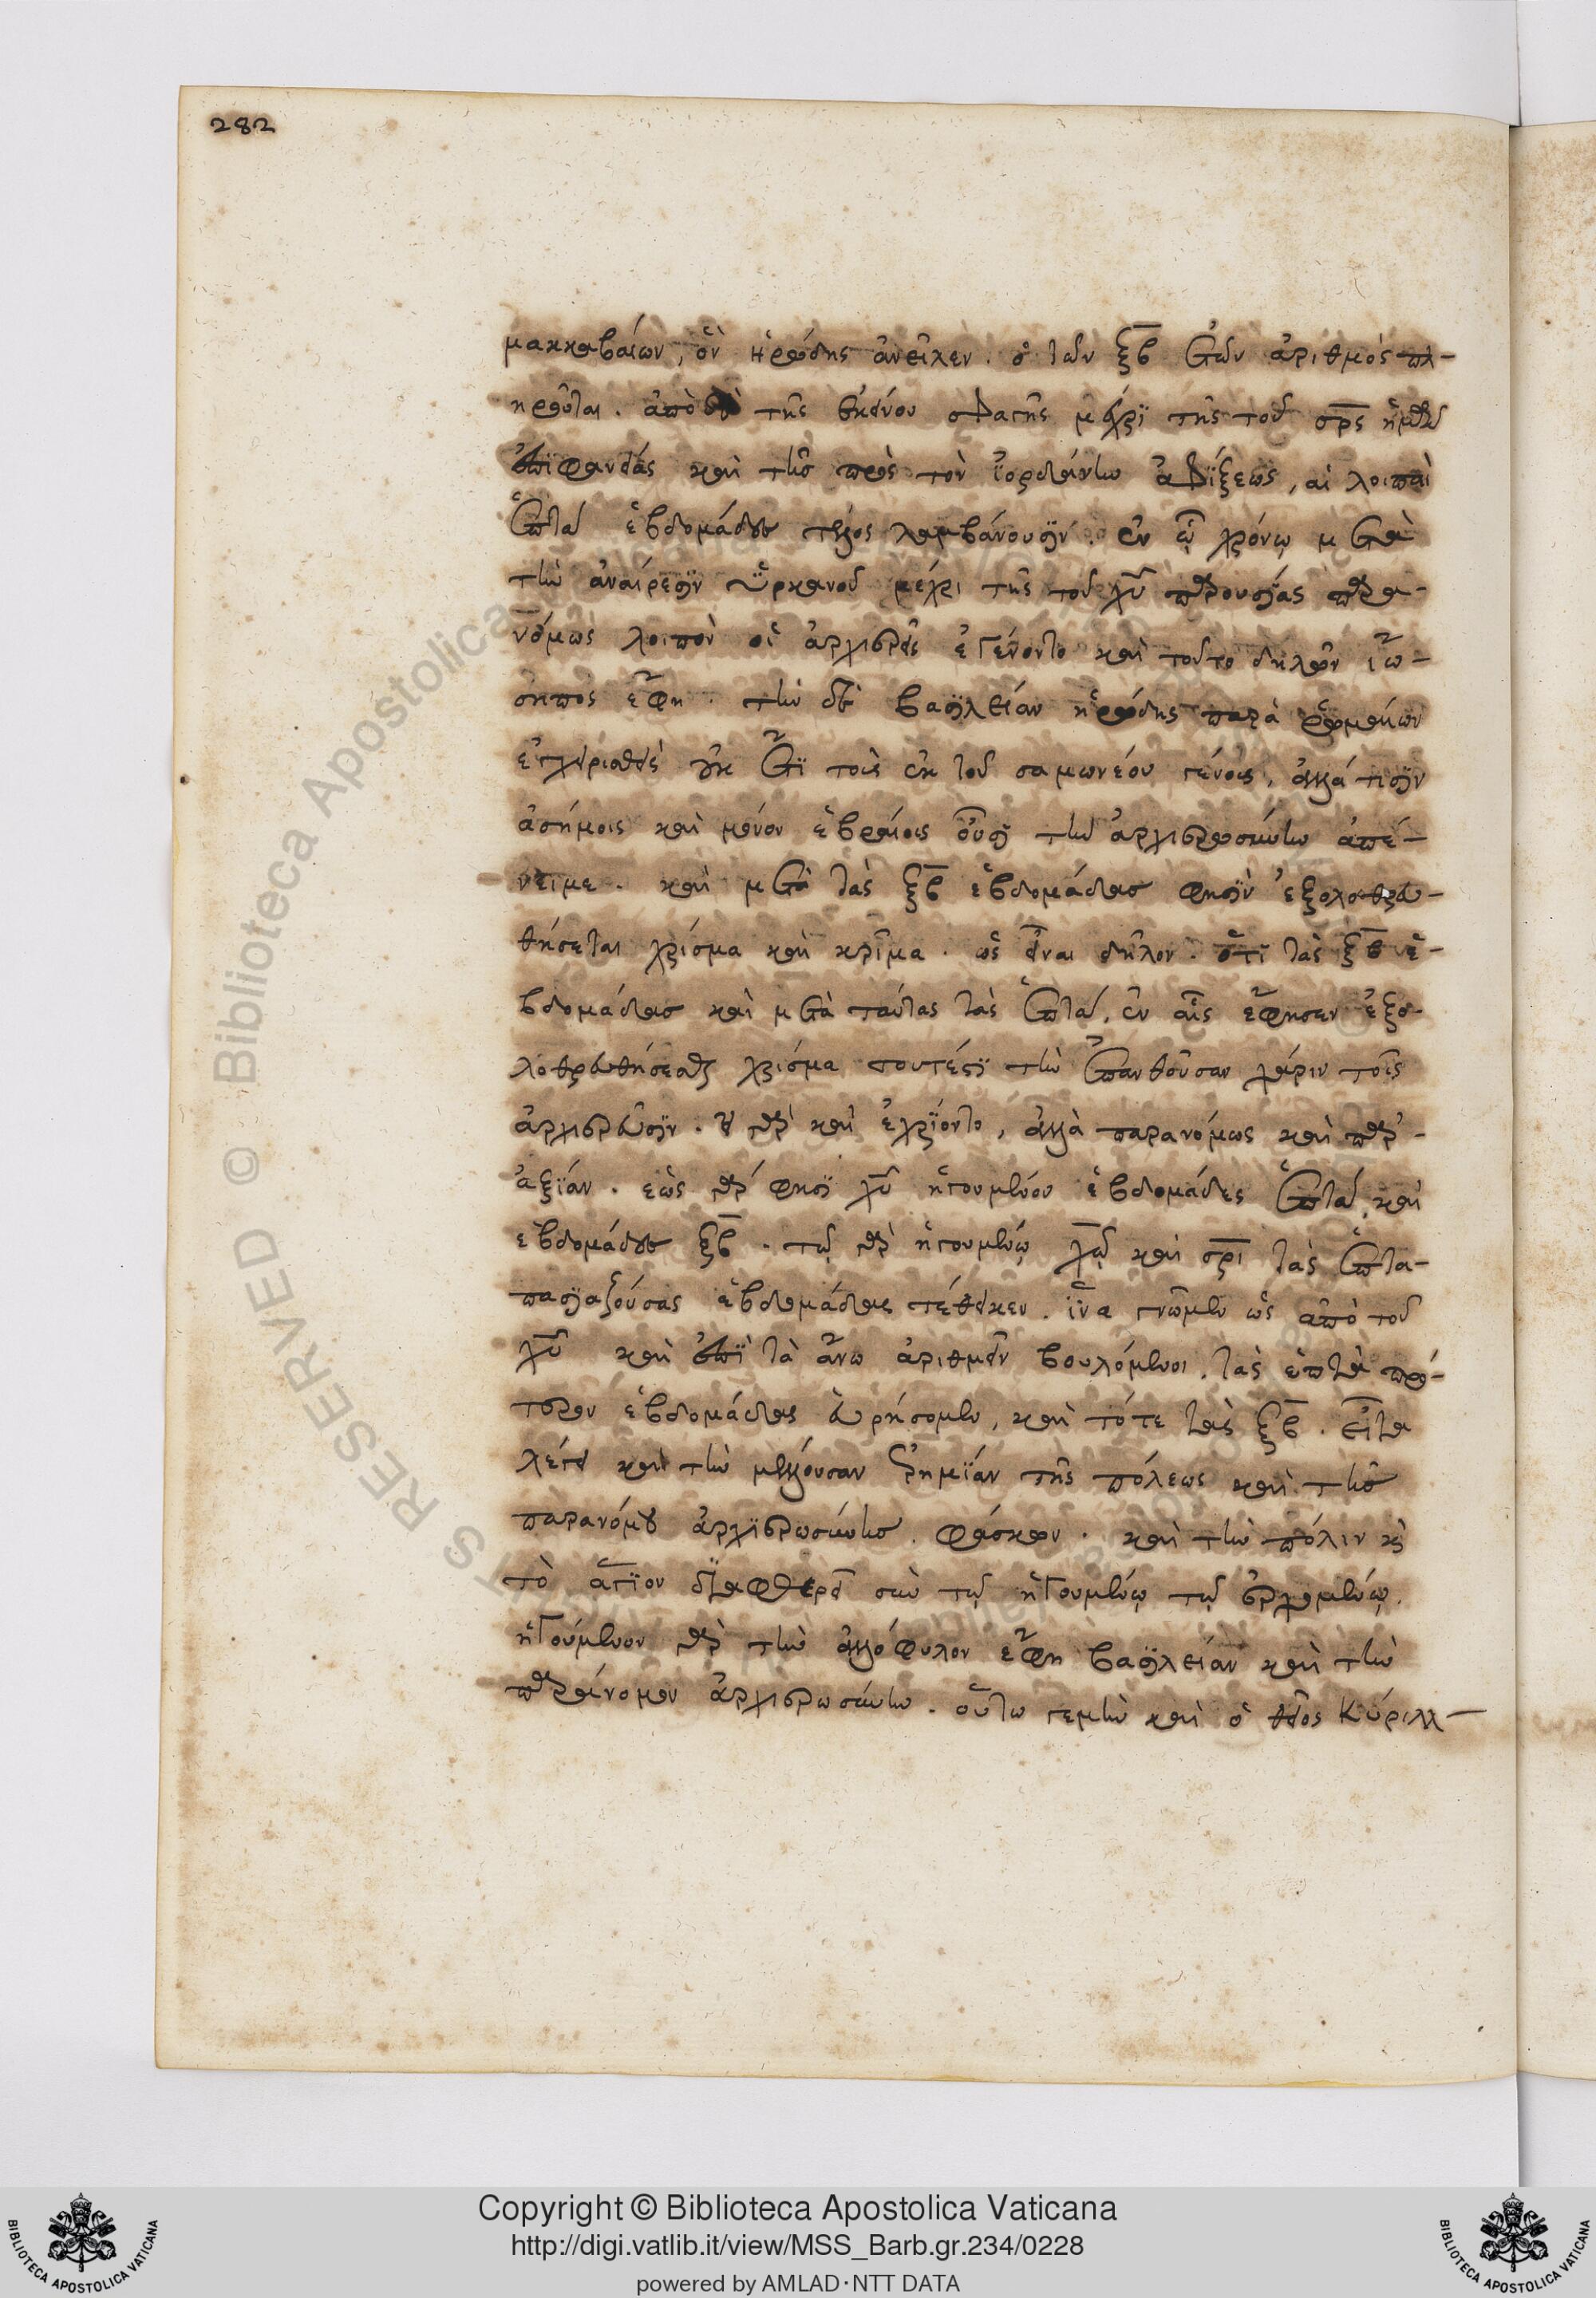 282
μακκαβαίων, ὃν ἡρώδης ἀνεῖλεν. ὁ τῶν ξβ ἐτῶν ἀριθμὸς πλ-
ηροῦται. ἀπὸ δὲ τῆς ἐκείνου σφαγῆς μέχρι τῆς τοῦ σρς ἡμῶν
ἐπιφανείας καὶ τῆς πρὸς τὸν ἰορδάνην ἀφίξεως, αἱ λοιπαὶ
ἑπτὰ ἑβδομάδες τέλος λαμβάνουσιν. ἐν ᾧ χρόνῳ μετὰ
τὴν ἀναίρεσιν ὑρκανοῦ μέχρι τῆς τοῦ χυ παρουσίας παρα-
νόμως λοιπὸν οἱ ἀρχιερεῖς ἐγένοντο καὶ τοῦτο δηλῶν ἰώ-
σηπος ἔφη. τὴν δὲ βασιλείαν ἡρώδης παρὰ ῥωμαίων
ἐγχειρισθεὶς οὐκ ἔτι τοῖς ἐκ τοῦ σαμωνέου γένοις, ἀλλά τισιν
ἀσήμοις καὶ μόνον ἑβραίοις οὖσι τὴν ἀρχιερωσύνην ἀπέ-
νειμε. καὶ μετὰ τὰς ξβ ἑβδομάδας φησὶν ἐξολοθρευ-
θήσεται χρίσμα καὶ κρίμα. ὡς εἶναι δῆλον. ὅτι τὰς ξβ ἑ-
βδομάδας καὶ μετὰ ταύτας τὰς ἑπτὰ, ἐν αἷς ἔφησεν ἐξο-
λοθρευθήσεσθαι χρίσμα τουτέστι τὴν ἐπανθοῦσαν χάριν τοῖς
ἀρχιερεῦσιν. οὐ γὰρ καὶ ἐχρίοντο, ἀλλὰ παρανόμως καὶ παρ'-
ἀξίαν. ἕως γάρ φησι χυ ἡγουμένου ἑβδομάδες ἑπτὰ, καὶ
ἑβδομάδες ξβ. τῷ γὰρ ἡγουμένῳ χῷ καὶ σρι τὰς ἑπτα-
πλασιαζούσας ἑβδομάδας τέθεικεν. ἵνα γνῶμεν ὡς ἀπὸ τοῦ
χυ καὶ ἐπὶ τὰ ἄνω ἀριθμεῖν βουλόμενοι, τὰς ἑπτὰ πρό-
τερον ἑβδομάδας εὑρήσομεν, καὶ τότε τὰς ξβ. εἶτα
λέγει καὶ τὴν μέλλουσαν ἐρημίαν τῆς πόλεως καὶ τῆς
παρανόμου ἀρχιερωσύνης. φάσκων. καὶ τὴν πόλιν κὶ
τὸ ἅγιον διαφθερεῖ σὺν τῷ ἡγουμένῳ τῷ ἐρχομένῳ.
ἡγούμενον γὰρ τὴν ἀλλόφυλον ἔφη βασιλείαν καὶ τὴν
παράνομον ἀρχιερωσύνην. οὕτω γεμὴν καὶ ὁ θεῖος κύριλλ-
Copyright © Biblioteca Apostolica Vaticana
http://digi.vatlib.it/view/MSS_Barb.gr.234/0228
powered by AMLAD·NTT DATA